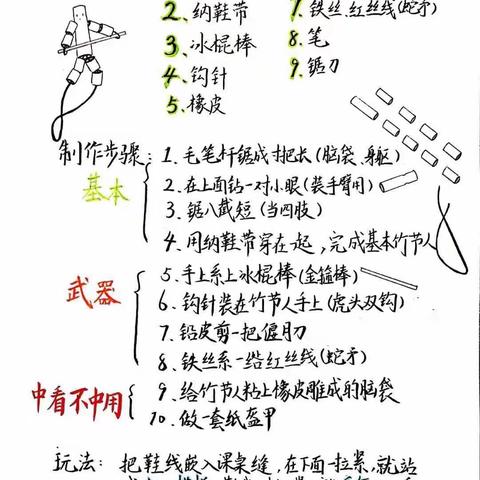 2、纳鞋带
3、冰棍棒
4、钩针
5、橡皮
7、铁丝、红丝线(蛇矛)
8、笔
9、锯刀
制作步骤：
基本
1、毛笔杆锯成一把长(脑袋、身躯)
2、在上面钻一对小眼(装手臂用)
3、锯八截短(当四肢)
4、用纳鞋带穿在一起，完成基本竹节人
武器
5、手上系上冰棍棒(金箍棒)
6、钩针装在竹节人手上(虎头双钩)
7、铅皮剪一把偃月刀
8、铁丝系一绺红丝线(蛇矛)
中看不中用
9、给竹节人粘上橡皮雕成的脑袋
10、做一套纸盔甲
玩法：把鞋线嵌入课桌缝，在下面一拉紧，就站